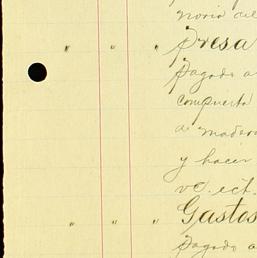 noria del
" " " Presa
Pagado a
compuerta
a madera
y hacer
vd. ect.
" " " Gastos
Pagado a